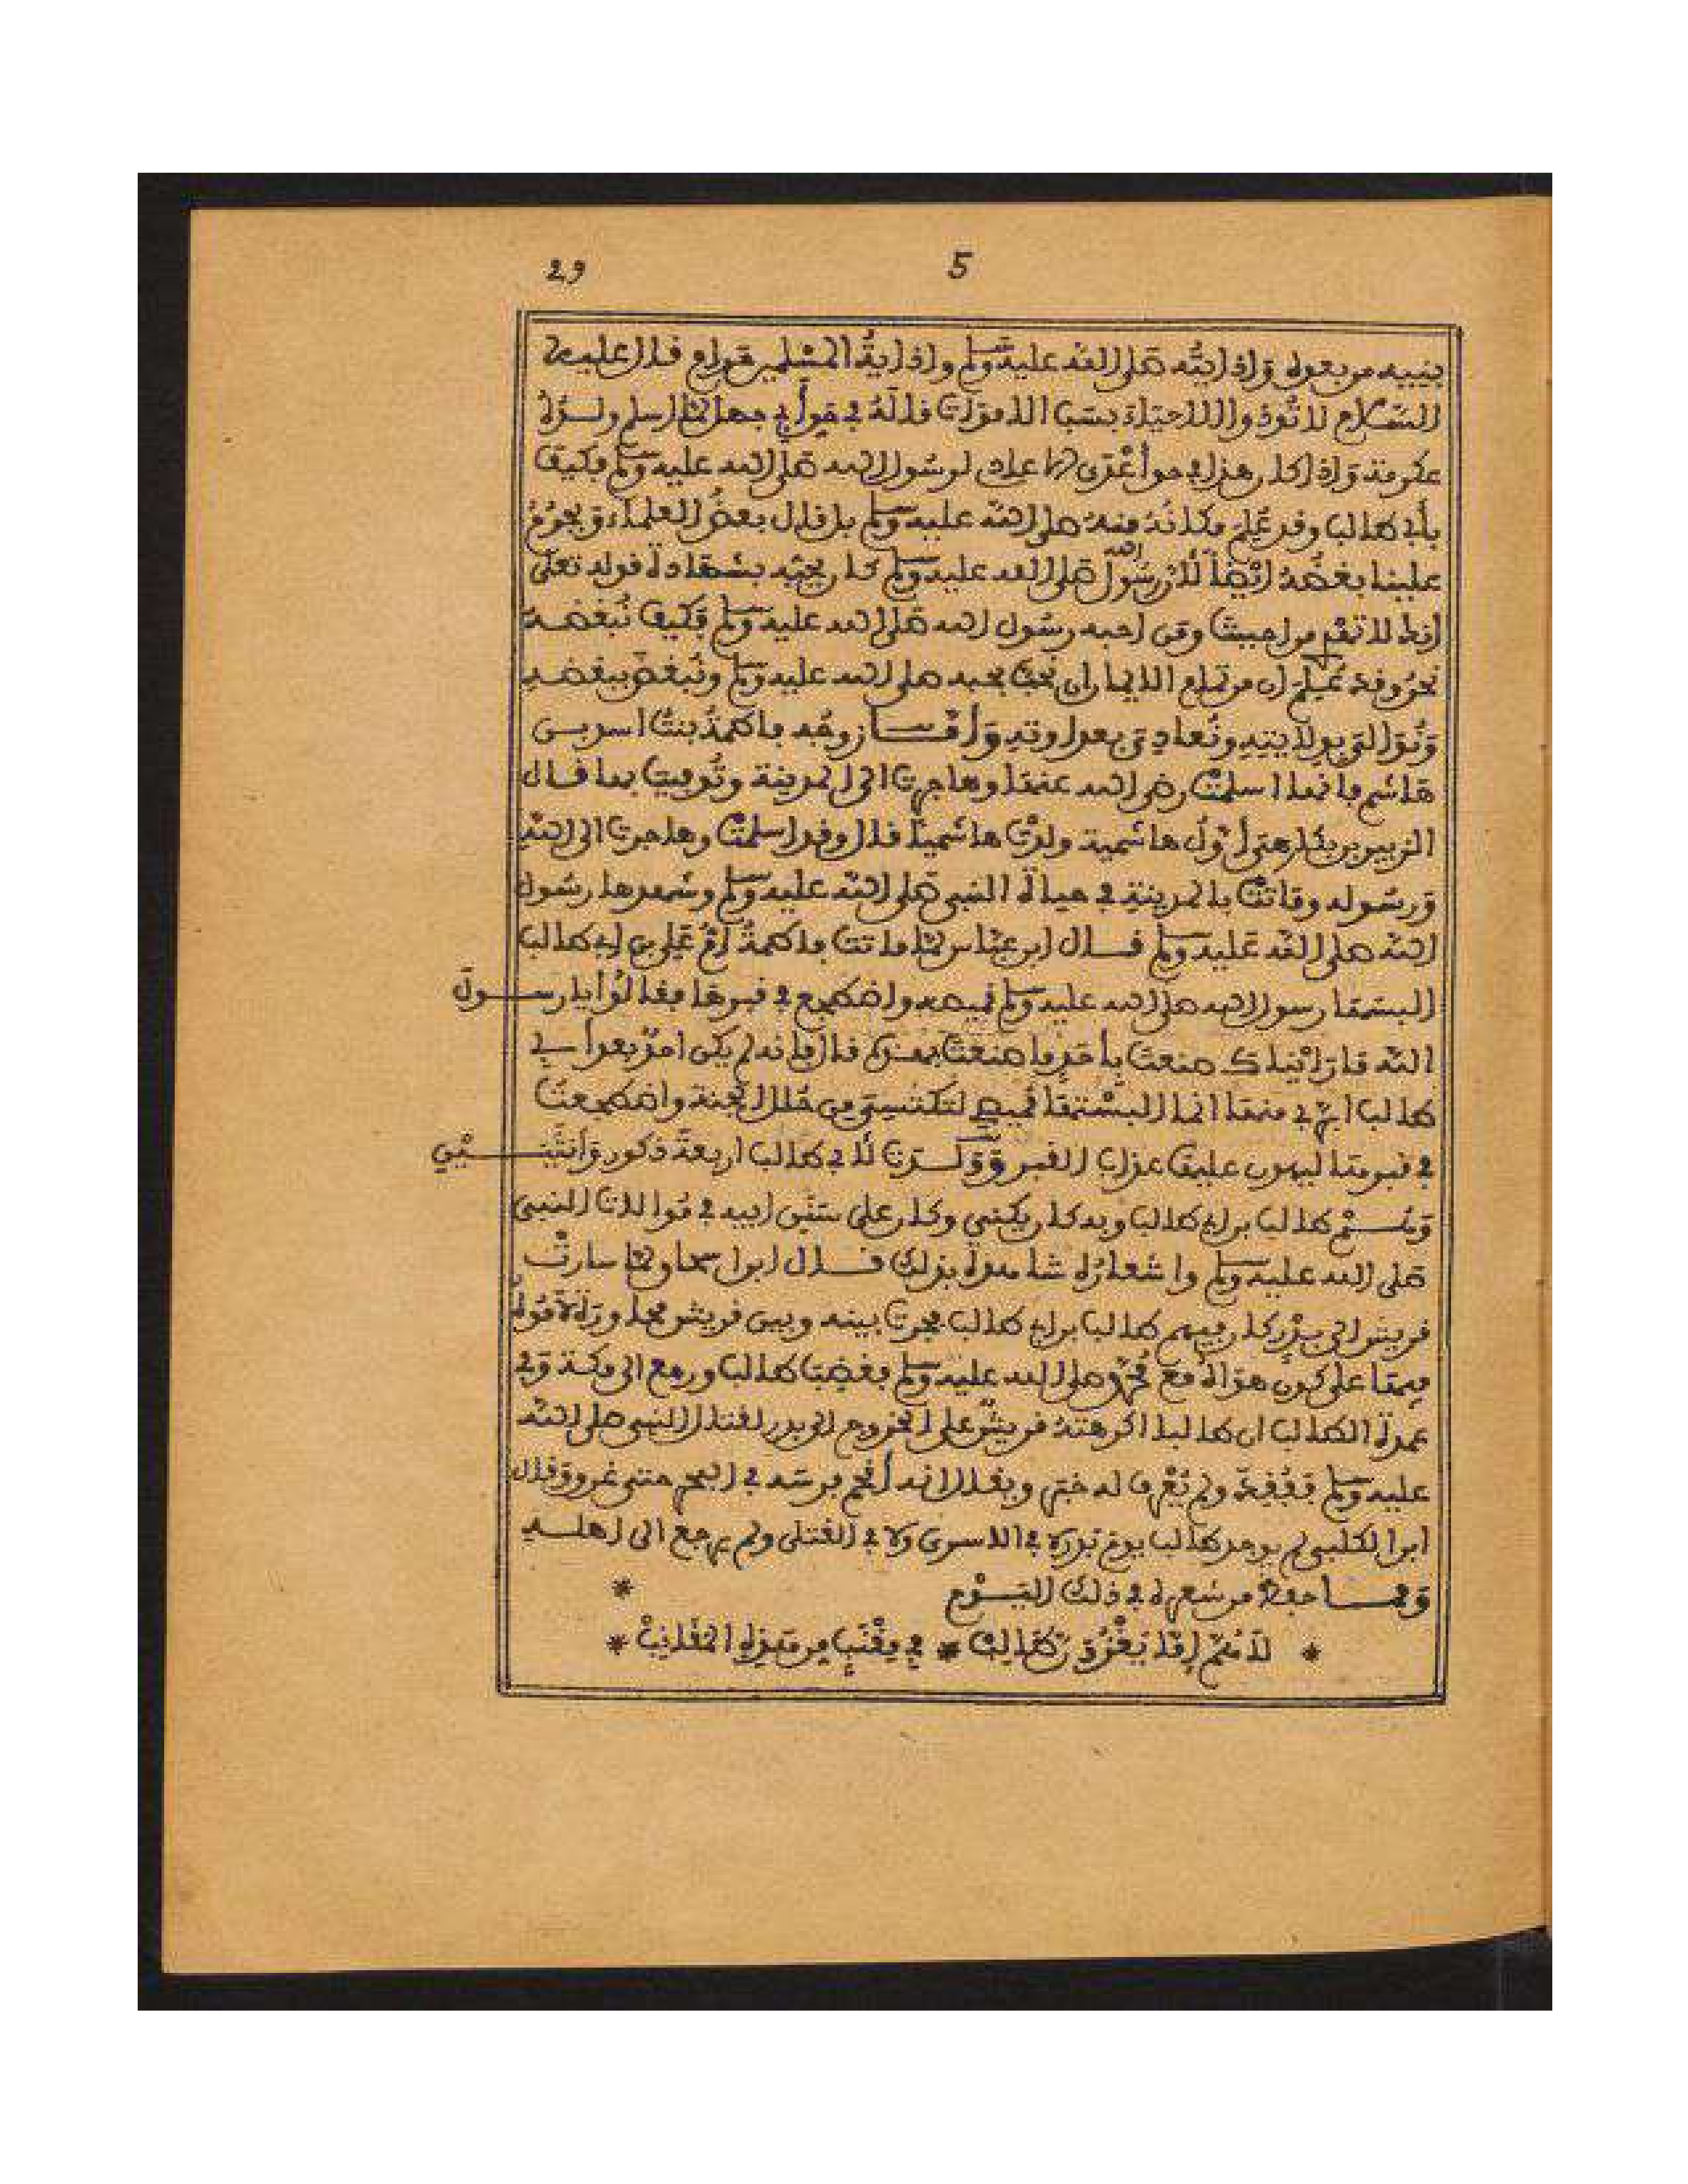 29 5
بنيه من بعده وإذايته صلى الله عليه وسلم وإذاية المسلمين حرام قال عليه
السلام لا تؤذوا الاحياء بسب الاموات قاله في حق أبي جهل لما اسلم ولده
عكرمة واذا كان هذا في حق أعدى الاعادي لرسول الله صلى الله عليه وسلم فكيف
بأبي طالب وقد علم مكانه منه صلى الله عليه وسلم بل قال بعض العلماء ويحرم
علينا بغضه ايضا لأن رسول الله صلى الله عليه وسلم كان يحبه بشهادة قوله تعلى
انك لا تهدي من احببت ومن احبه رسول الله صلى الله عليه وسلم فكيف نبغضه
نحن وقد علم ان من تمام الايمان ان نحب بحبه صلى الله عليه وسلم ونبغض ببغضه
ونوالي بولايته ونعادي بعداوته وأمــا زوجه فاطمة بنت اسد بن
هاشم فانها اسلمت رضي الله عنها وهاجرت الى المدينة وتوفيت بها قال
الزبير بن بكار هي أول هاشمية ولدت هاشميا قال وقد اسلمت وهاجرت الى الله
ورسوله وماتت بالمدينة في حياة النبي صلى الله عليه وسلم وشهدها رسول
الله صلى الله عليه وسلم قــال ابن عباس لما ماتت فاطمة أم علي بن ابي طالب
البسها رسول الله صلى الله عليه وسلم قميصه واضطجع في قبرها فقالوا يا رســول
الله ما رايناك صنعت بأحد ما صنعت بهذه قال فإنه لم يكن احد بعد أبي
طالب ابر بي منها انما البستها قميصي لتكتسي من حلل الجنة واضطجعت
في قبرها ليهون عليها عذاب القبر وولــدت لأبي طالب اربعة ذكور وأنثيــين
وهــم طالب بن ابي طالب وبه كان يكنى وكان على سنن ابيه في موالات النبي
صلى الله عليه وسلم واشعاره شاهدة بذلك قــال ابن اسحاق لما سارت
قريش الى بدر كان فيهم طالب بن ابي طالب فجرت بينه وبين قريش محاورة لاموه
فيها على كون هواه مع محمد صلى الله عليه وسلم فغضب طالب ورجع الى مكة وفي
عمدة الطالب ان طالبا اكرهته قريش على الخروج الى بدر لقتال النبي صلى الله
عليه وسلم ففقد ولم يعرف له خبر ويقال انه أقحم فرسه في البحر حتى غرق وقال
ابن الكلبي لم يوجد طالب يوم بدر لا في الاسرى ولا في القتلى ولم يرجع الى اهله
وممــا حفظ من شعره في ذلك اليــوم *
* لاهم إما يغزون طالب * في مقنب من هذه المقانب *